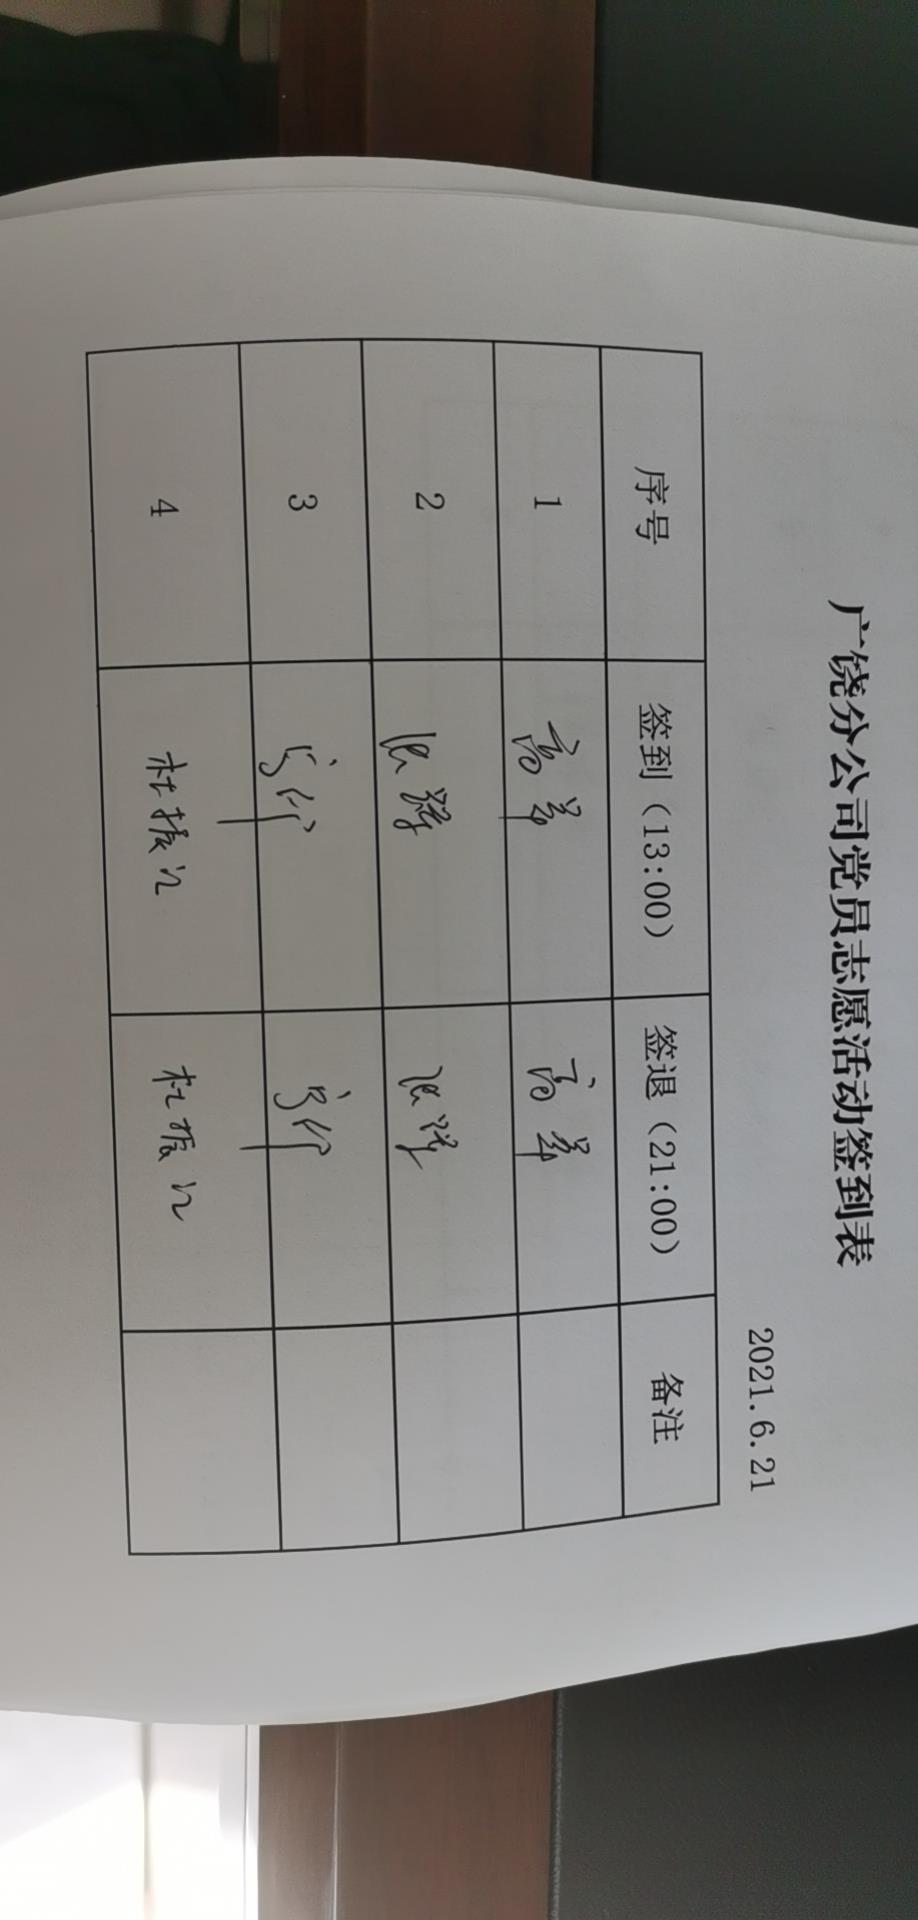 广饶分公司党员志愿活动签到表
2021.6.21
序号 签到（13:00） 签退（21:00） 备注
1 高 高
2
3
4 杜振江 杜振江